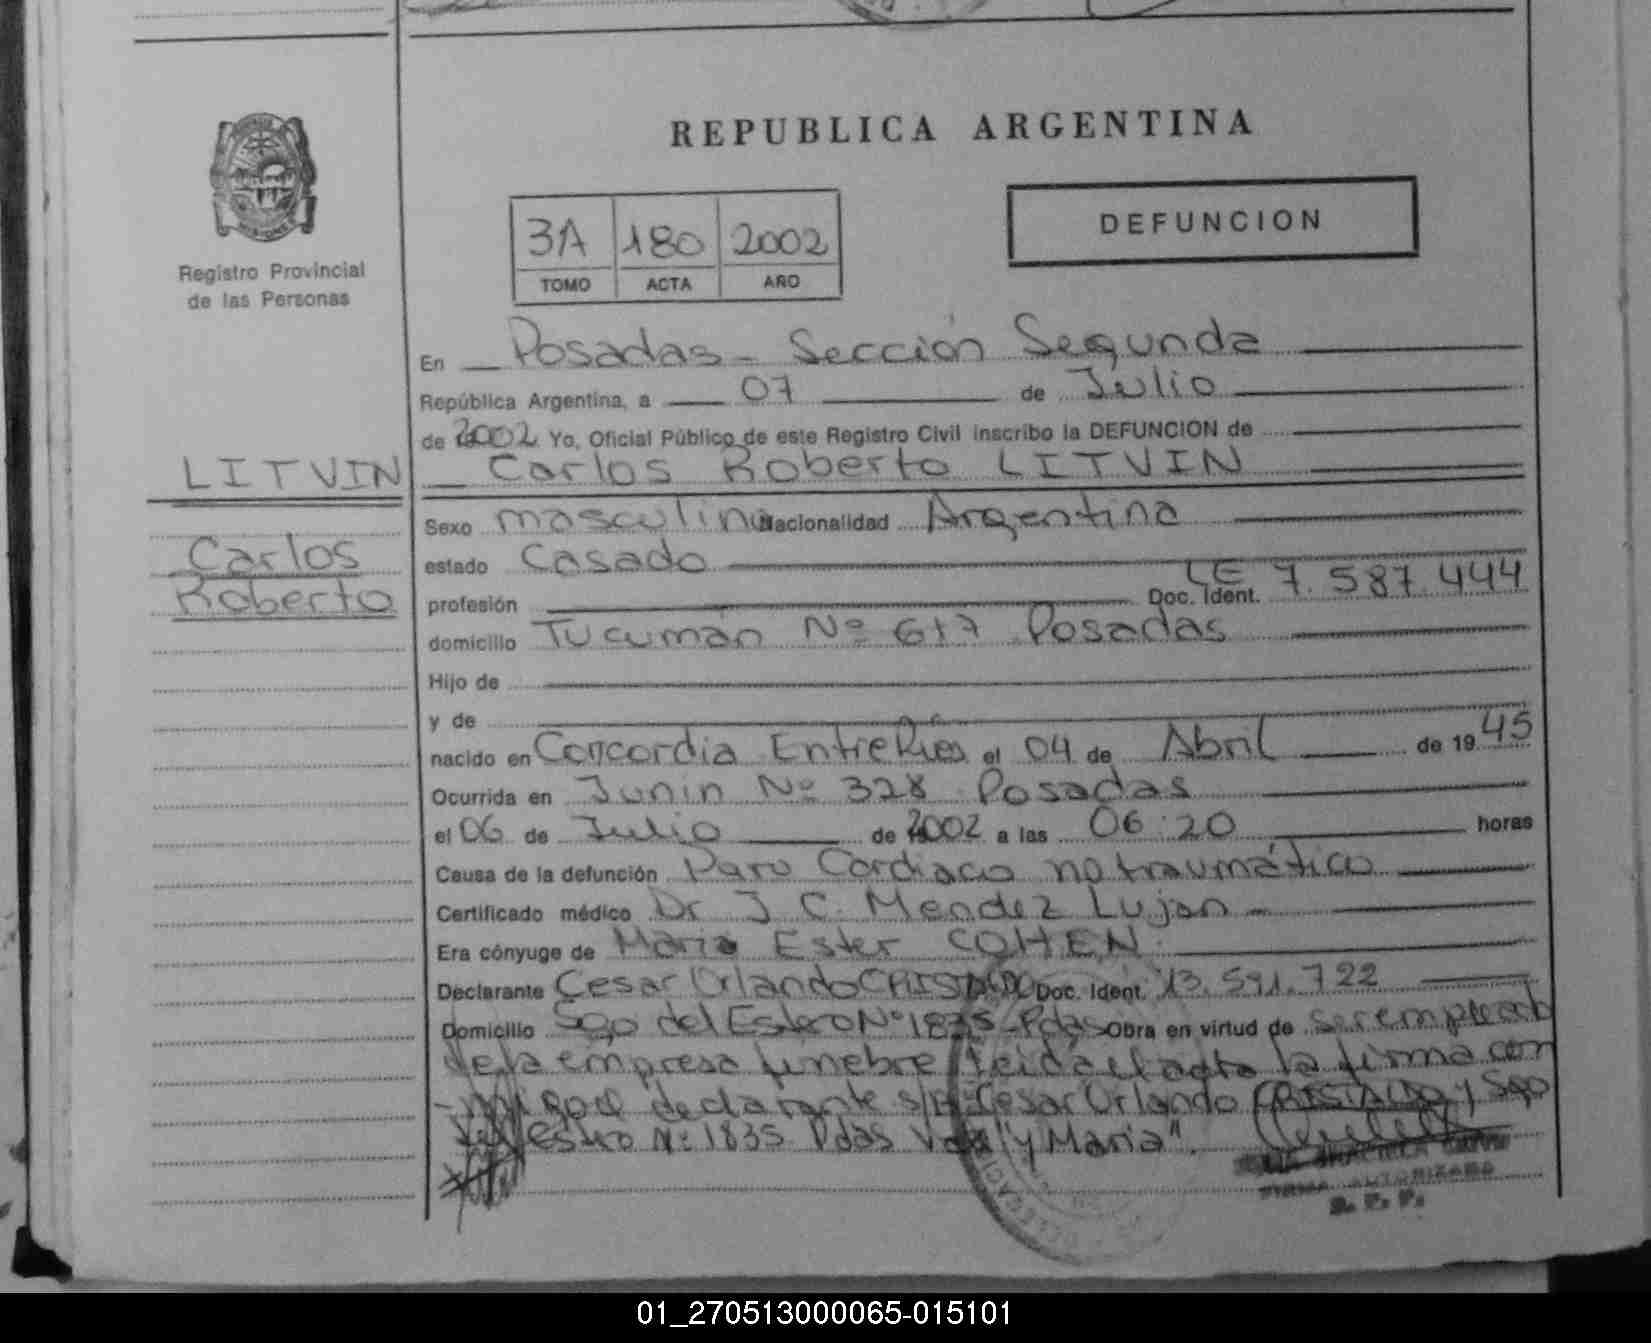 REPUBLICA ARGENTINA
Registro Provincial
de las Personas
3A 180 2002
TOMO ACTA AÑO
DEFUNCION
En Posadas - Sección Segunda
República Argentina, a 07 de Julio
de 2002 Yo, Oficial Público de este Registro Civil inscribo la DEFUNCION de
LITVIN
Carlos Roberto LITVIN
Carlos
Roberto
Sexo masculino Nacionalidad Argentina
estado Casado
profesión Doc. Ident. LE 7.587.444
domicilio Tucumán Nº 617 Posadas
Hijo de
y de
nacido en Concordia Entre Ríos el 04 de Abril de 1945
Ocurrida en Junin Nº 328 Posadas
el 06 de Julio de 2002 a las 06:20 horas
Causa de la defunción Paro Cardiaco no traumático
Certificado médico Dr J C. Mendez Lujan
Era cónyuge de Maria Ester COHEN
Declarante Cesar Orlando CRISTALDO Doc. Ident. 13.591.722
Domicilio Sgo del Estero Nº 1835 - Pdas Obra en virtud de ser empleado
de la empresa funebre leida el acta la firma con
-migo el declarante Cesar Orlando CRISTALDO y Sgo
del Estero Nº 1835 Pdas "y Maria".
FIRMA AUTORIZADA
R. P. P.
01_270513000065-015101